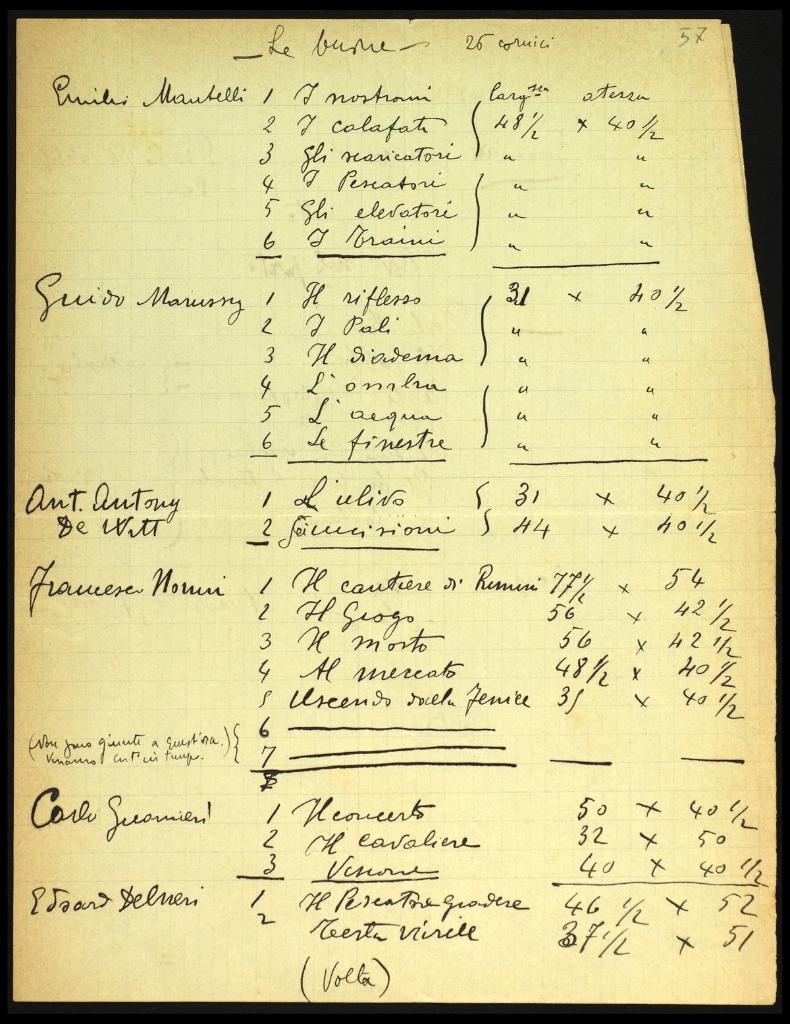 Le buone — 26 cornici 57
Emilio Mantelli 1 I nostromi larg.ssa altezza
2 I calafati 48 1/2 x 40 1/2
3 Gli scaricatori " "
4 I Pescatori " "
5 Gli elevatori " "
6 I Traini " "
Guido Marussig 1 Il riflesso 31 x 40 1/2
2 I Pali " "
3 Il diadema " "
4 L'ombra " "
5 L'acqua " "
6 Le finestre " "
Ant. Antony 1 L'ulivo 31 x 40 1/2
De Witt 2 44 x 40 1/2
Francesco Nonni 1 Il cantiere di Rimini 77 1/2 x 54
2 Il Giogo 56 x 42 1/2
3 Il morto 56 x 42 1/2
4 Al mercato 48 1/2 x 40 1/2
5 Uscendo dalla Fenice 35 x 40 1/2
6
(Non sono giunte a quest'ora.) 7
Verranno in tempo.
Carlo Guarnieri 1 Il concerto 50 x 40 1/2
2 Il cavaliere 32 x 50
3 Visione 40 x 40 1/2
Edoardo Delneri 1 Il Pescatore gradese 46 1/2 x 52
2 Testa virile 37 1/2 x 51
(Volta)